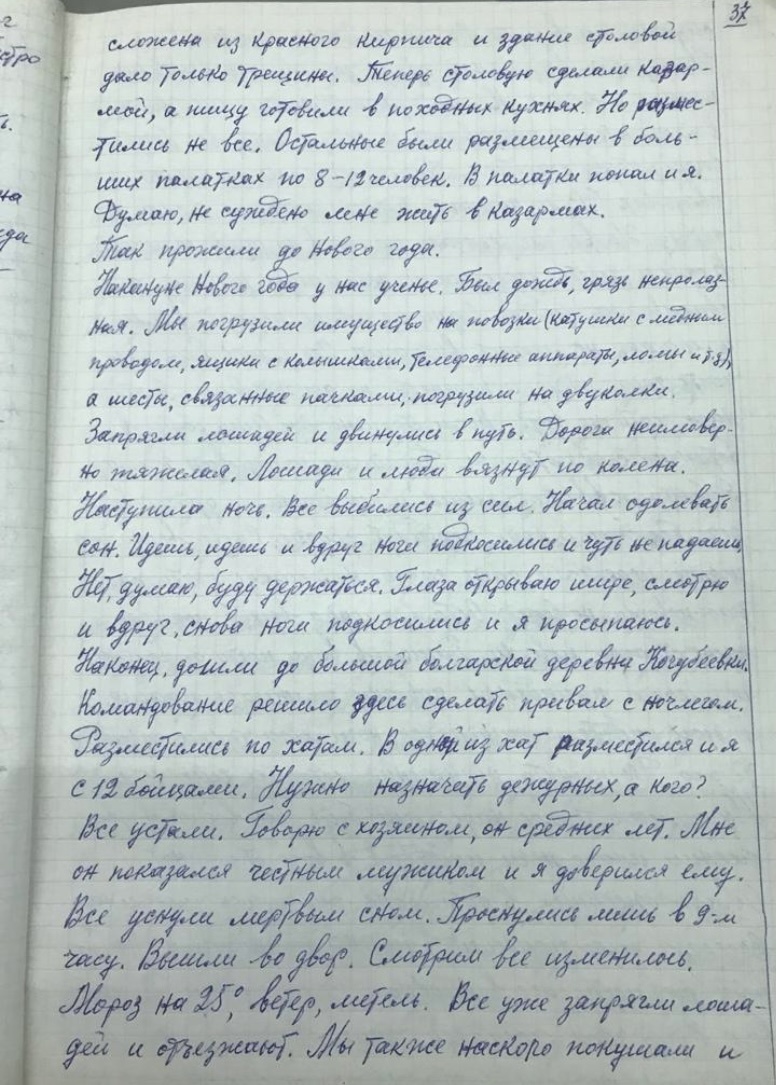 37
сложена из красного кирпича и здание столовой
дало только трещины. Теперь столовую сделали казар-
мой, а пищу готовили в походных кухнях. Но размес-
тились не все. Остальные были размещены в боль-
ших палатках по 8-12 человек. В палатки попал и я.
Думаю, не суждено мне жить в казармах.
Так прожили до Нового года.
Накануне Нового года у нас ученье. Был дождь, грязь непролаз-
ная. Мы погрузили имущество на повозки (катушки с медным
проводом, ящики с колышками, телефонные аппараты, ломы и т.д),
а шесты, связанные пачками, погрузили на двуколки.
Запрягли лошадей и двинулись в путь. Дорога неимовер-
но тяжелая. Лошади и люди вязнут по колена.
Наступила ночь. Все выбились из сил. Начал одолевать
сон. Идешь, идешь и вдруг ноги подкосились и чуть не падаешь.
Нет, думаю, буду держаться. Глаза открываю шире, смотрю
и вдруг, снова ноги подкосились и я просыпаюсь.
Наконец, дошли до большой болгарской деревни Кочубеевки.
Командование решило здесь сделать привал с ночлегом.
Разместились по хатам. В одной из хат разместился и я
с 12 бойцами. Нужно назначить дежурных, а кого?
Все устали. Говорю с хозяином, он средних лет. Мне
он показался честным мужиком и я доверился ему.
Все уснули мертвым сном. Проснулись лишь в 9-м
часу. Вышли во двор. Смотрим все изменилось.
Мороз на 25°, ветер, метель. Все уже запрягли лоша-
дей и отъезжают. Мы также наскоро покушали и